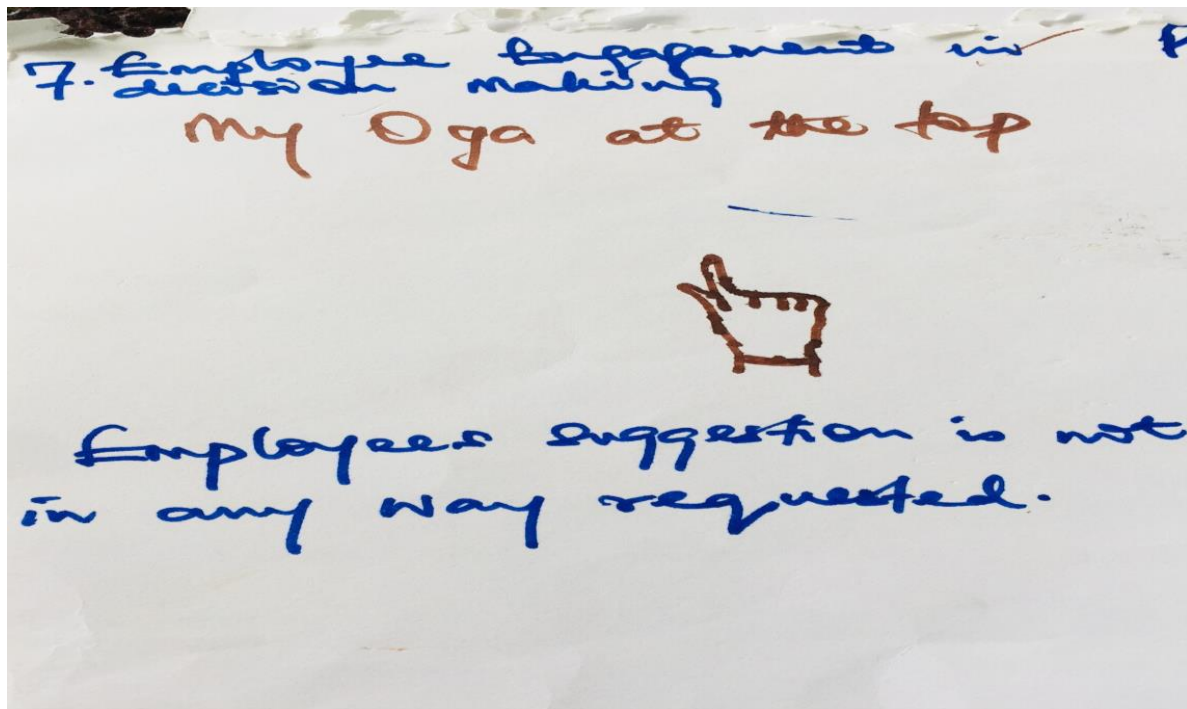 7. Employee Engagement in
decision making
My Oga at the top
Employees suggestion is not
in any way requested.